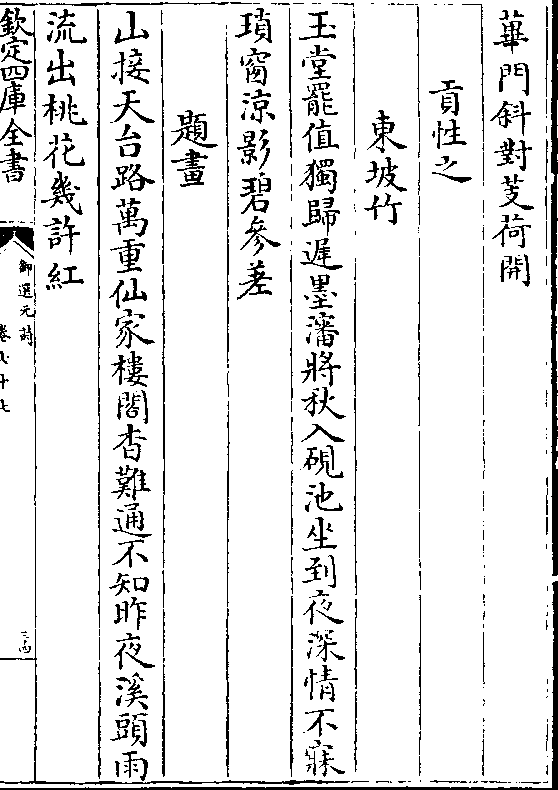 蓽門斜對芰荷開
貢性之
東坡竹
玉堂罷值獨歸遲墨瀋將秋入硯池坐到夜深情不寐
瑣窗涼影碧參差
題畫
山接天台路萬重仙家樓閣杳難通不知昨夜溪頭雨
流出桃花幾許紅
欽定四庫全書
御選元詩
卷七十七
三十四